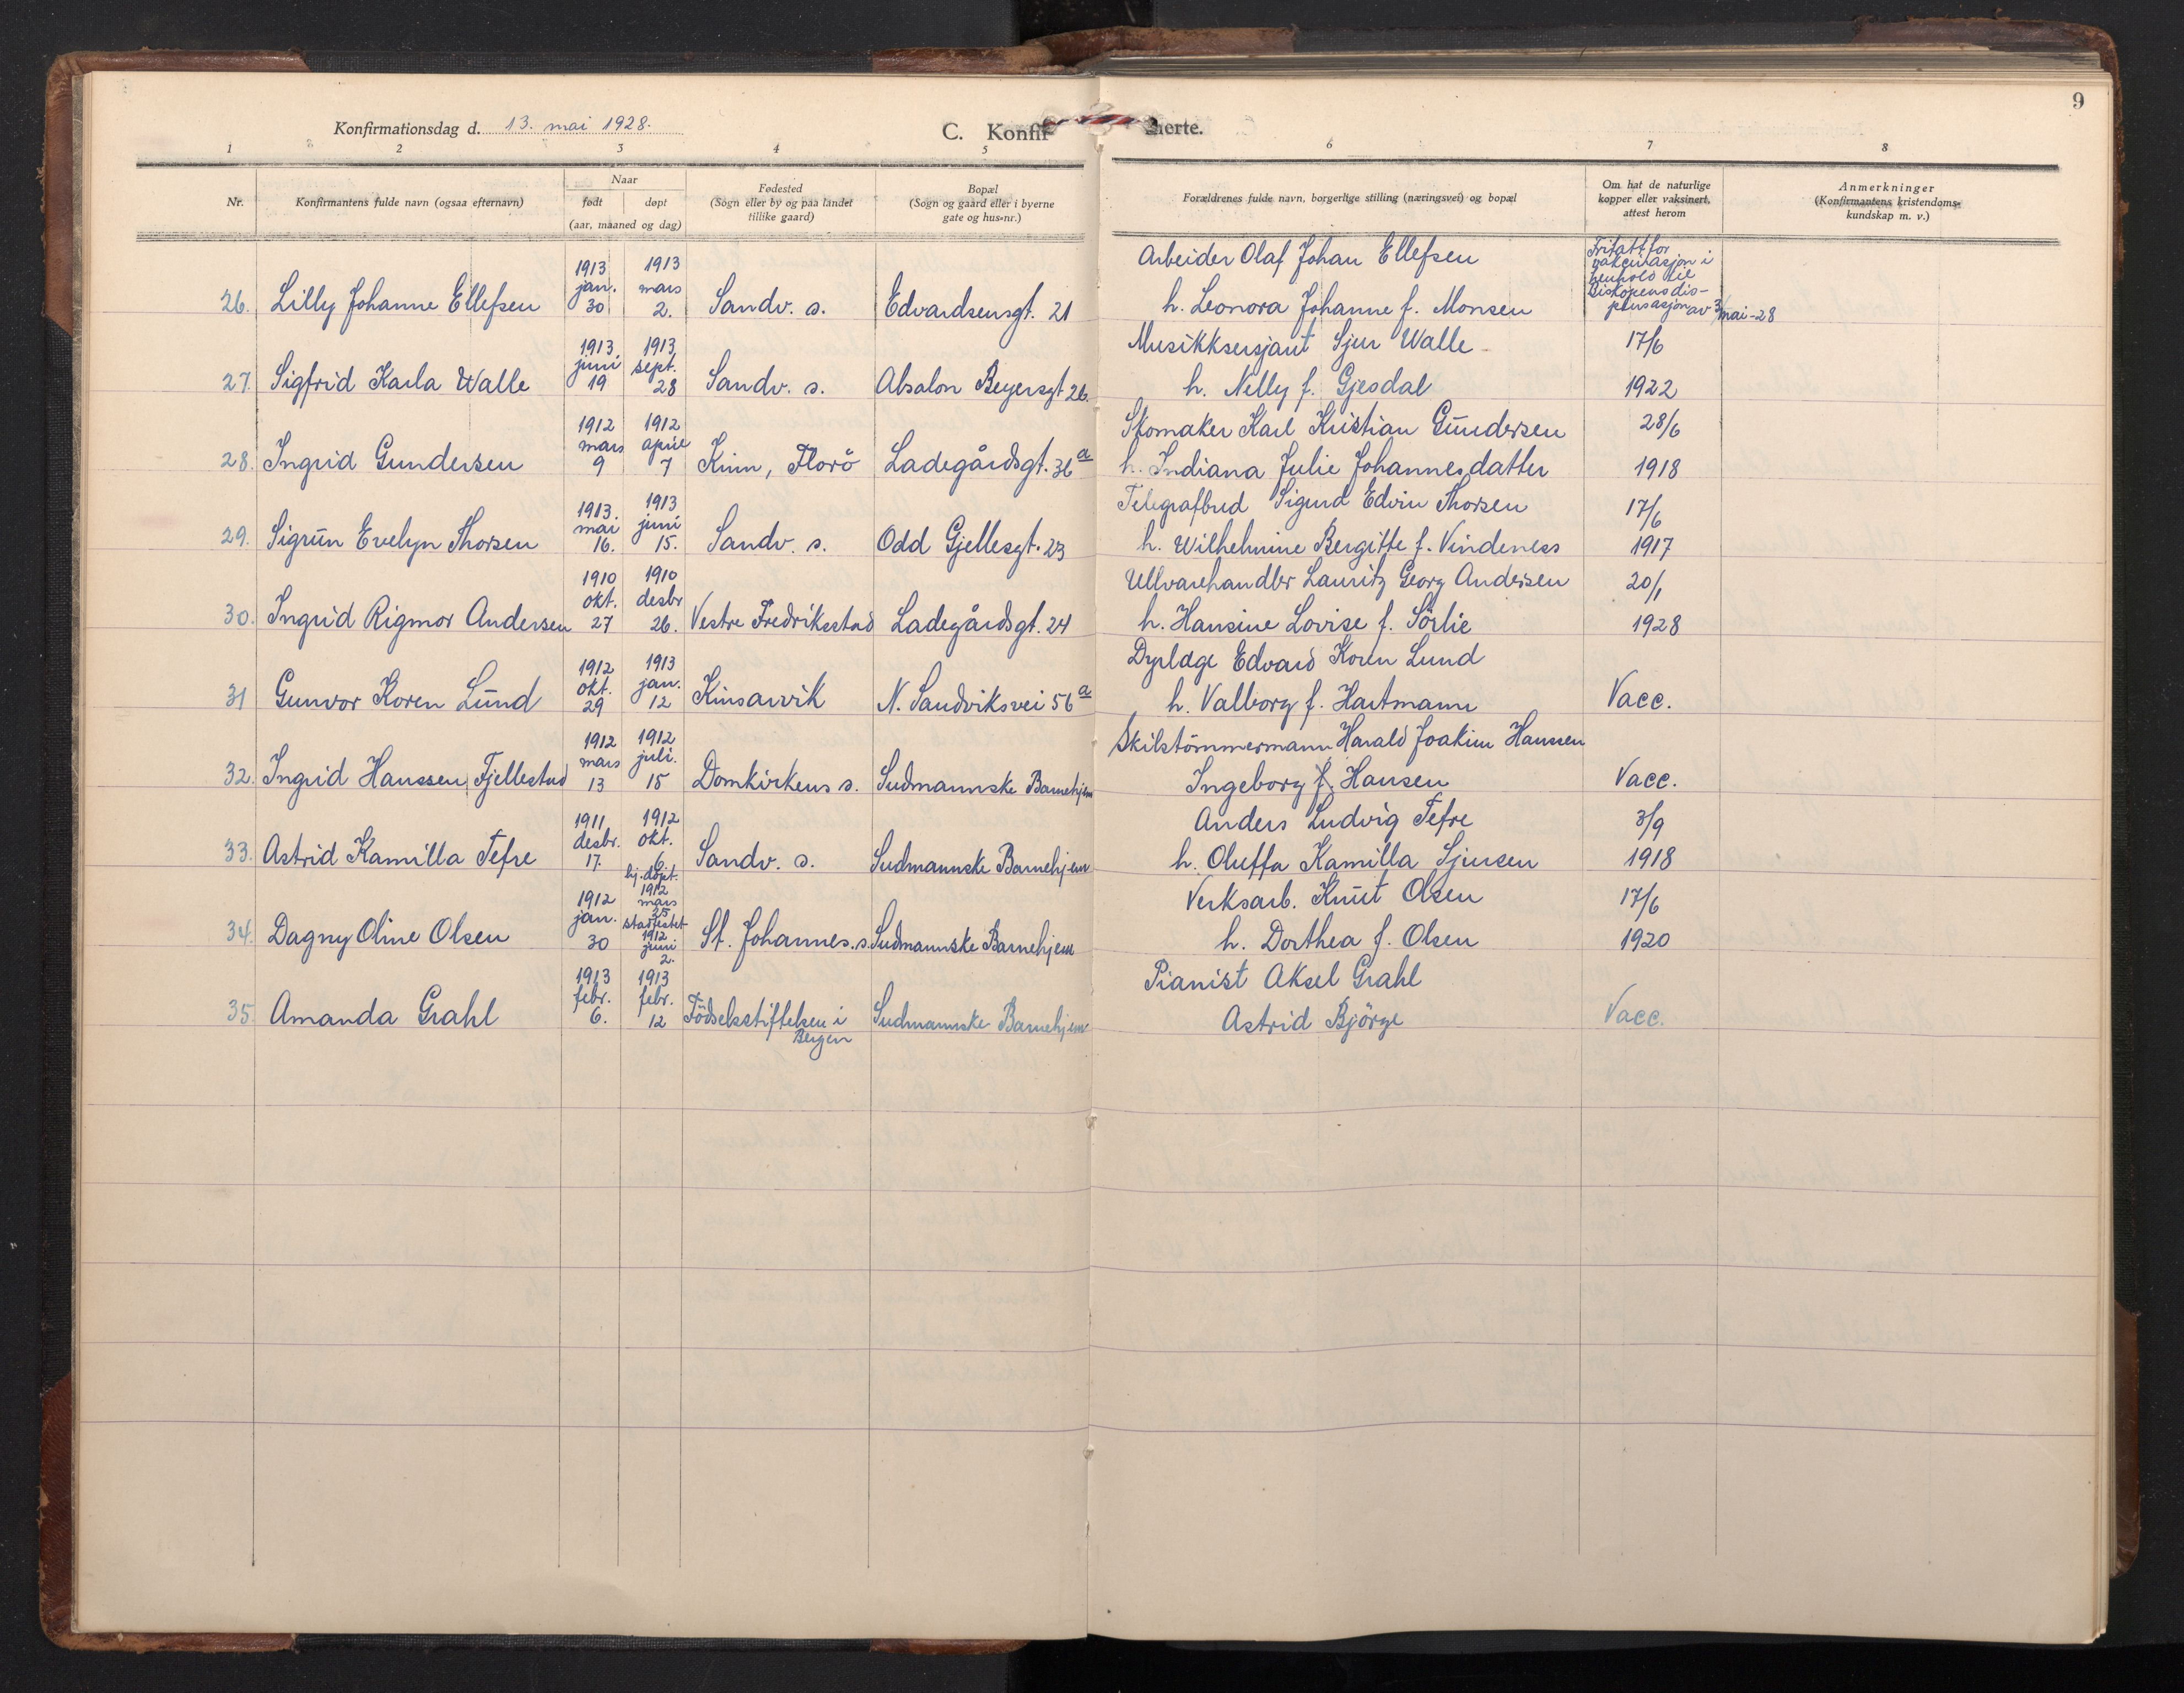 9
Konfirmationsdag d. 13. mai 1928.
C. Konfir merte.
1 2 3 4 5 6 7 8
Nr.
Konfirmantens fulde navn (ogsaa efternavn)
Naar
født døpt
(aar, maaned og dag)
Fødested
(Sogn eller by og paa landet
tillike gaard)
Bopæl
(Sogn og gaard eller i byerne
gate og hus-nr.)
Forældrenes fulde navn, borgerlige stilling (næringsvei) og bopæl
Om hat de naturlige
kopper eller vaksinert,
attest herom
Anmerkninger
(Konfirmantens kristendoms-
kundskap m. v.)
1913 1913 Arbeider Olaf Johan Ellefsen Fritatt for
jan. mars vakcinasjon i
henhold til
Biskopens dis-
26. Lilly Johanne Ellefsen 30 2. Sandv. s. Edvardsensgt. 21 h. Leonora Johanne f. Monsen pensasjon av 3/mai-28
1913. 1913 Musikksersjant Sjur Walle 17/6
juni sept.
27. Sigfrid Karla Walle 19 28 Sandv. s. Absalon Beyersgt 26. h. Nelly f. Gjesdal 1922
1912 1912 Skomaker Karl Kristian Gundersen 28/6
mars april
28. Ingrid Gundersen 9 7 Kinn, Florö Ladegårdsgt. 36a h. Indiana Julie Johannesdatter 1918
1913. 1913 Telegrafbud Sigurd Edvin Thorsen 17/6
mai juni
29. Sigrun Evelyn Thorsen 16. 15. Sandv. s. Odd Gjellesgt. 23 h. Wilhelmine Bergitte f. Vindeness 1917
1910 1910 Ullvarehandler Lauritz Georg Andersen 20/1
okt. desbr
30. Ingrid Rigmor Andersen 27 26. Vestre Fredriksstad Ladegårdsgt. 24 h. Hansine Lovise f. Sörlie 1928
1912 1913 Dyrlæge Edvard Koren Lund
okt. jan.
31 Gunvor Koren Lund 29 12 Kinsarvik N. Sandviksvei 56a h. Valborg f. Hartmann Vacc.
1912 1912 Skilstömmermann Harald Joakim Hanssen
mars juli.
32. Ingrid Hanssen Fjellestad 13 15 Domkirkens s. Sudmannske Barnehjem Ingeborg f. Hansen Vacc.
1911 1912 Anders Ludvig Tefre 3/9
desbr. okt.
33. Astrid Kamilla Tefre 17. 6. Sandv. s. Sudmannske Barnehjem h. Oluffa Kamilla Sjursen 1918
hj. döpt.
1912 1912 Verksarb. Knut Olsen 17/6
jan. mars
25
stadfestet
34. Dagny Oline Olsen 30 1912 St. Johannes. s. Sudmannske Barnehjem h. Dorthea f. Olsen 1920
juni
2.
1913 1913 Pianist Aksel Grahl
febr. febr.
35. Amanda Grahl 6. 12 Födselsstiftelsen i Sudmannske Barnehjem Astrid Björge Vacc.
Bergen